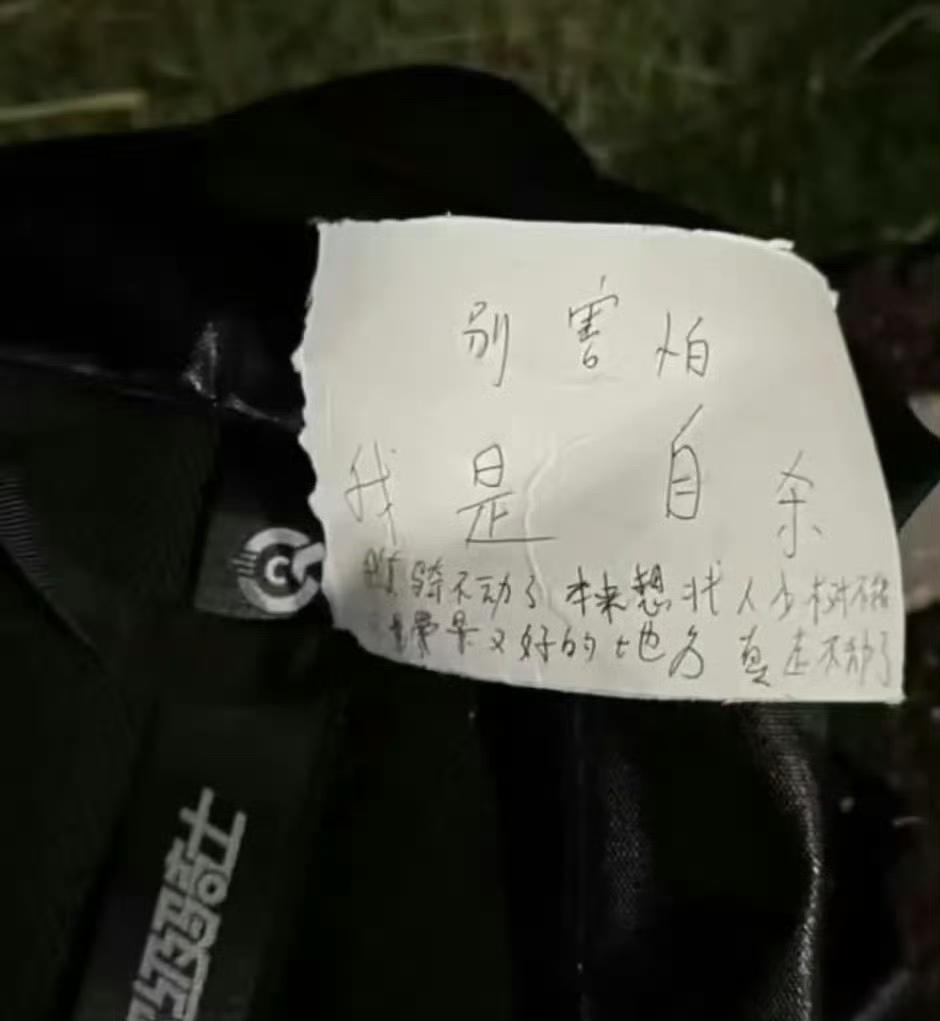 别害怕
我是自杀
骑不动了 本来想找人少树不错
风景又好的地方 真走不动了